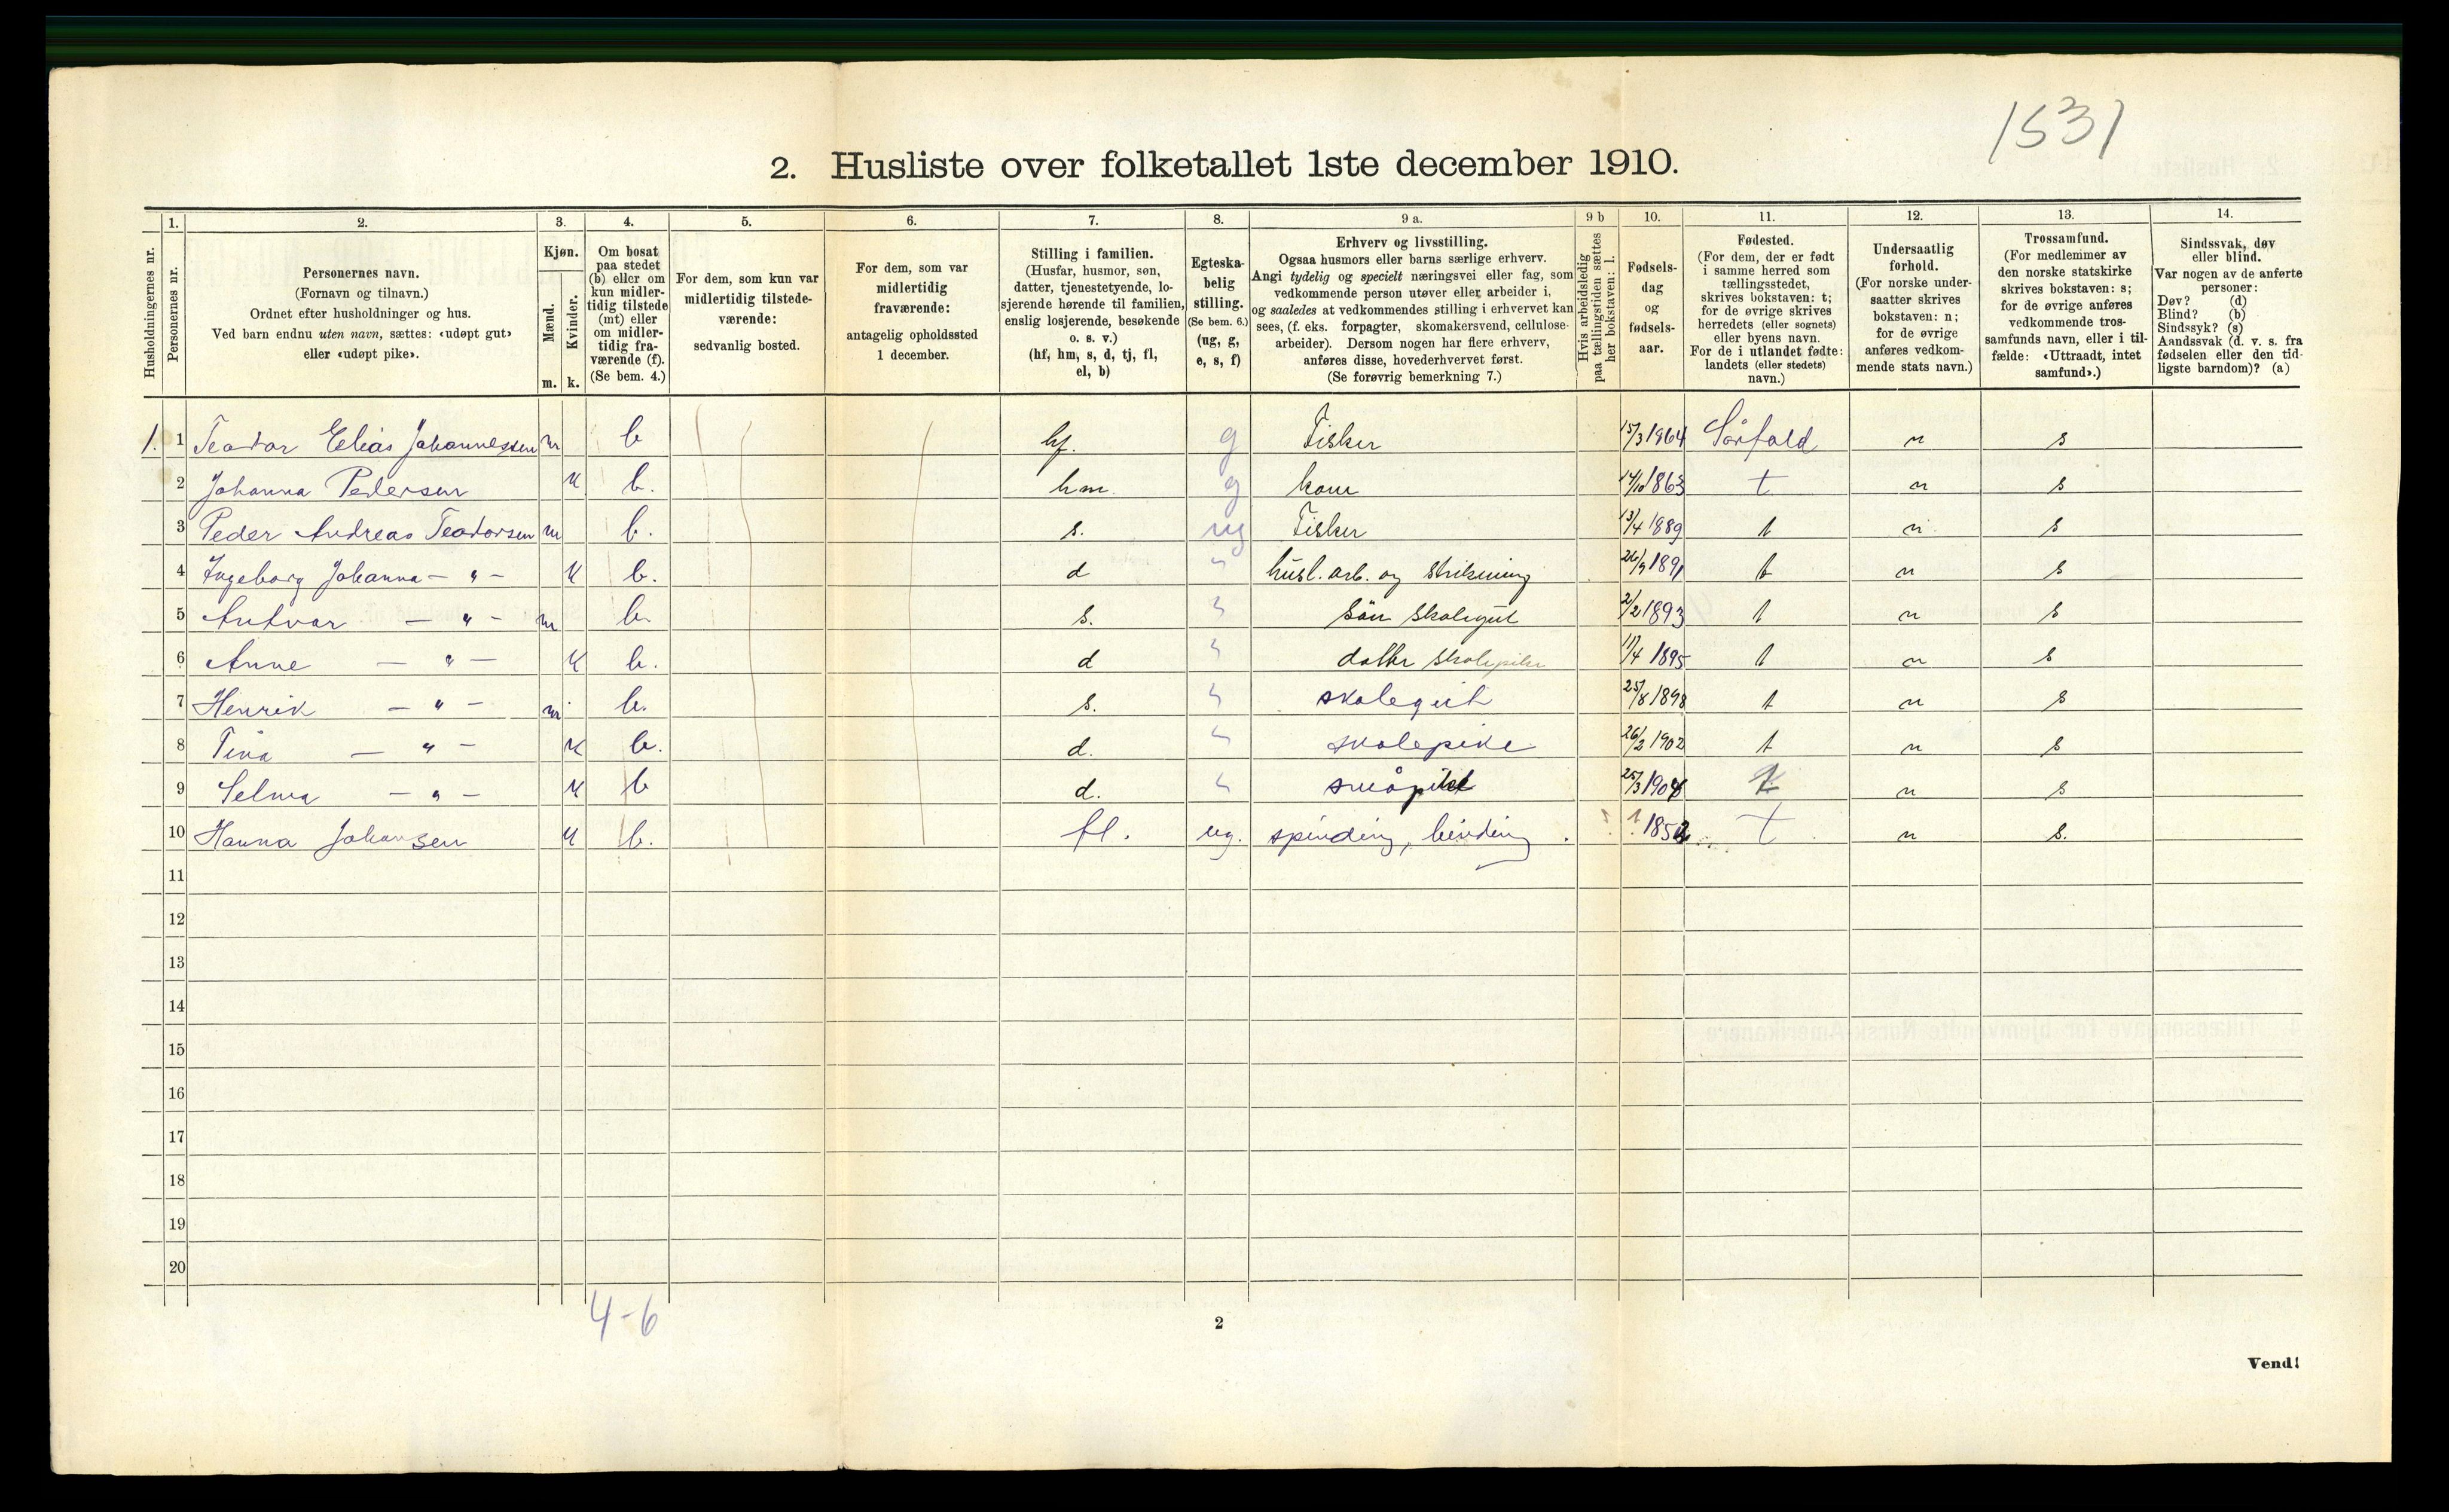 1531
2. Husliste over folketallet 1ste december 1910.
Husholdningernes nr.
1. Personernes nr.
2. Personernes navn.
(Fornavn og tilnavn.)
Ordnet efter husholdninger og hus.
Ved barn endnu uten navn, sættes: «udøpt gut»
eller «udøpt pike».
3. Kjøn.
Mænd. m.
Kvinder. k.
4. Om bosat
paa stedet
(b) eller om
kun midler-
tidig tilstede
(mt) eller
om midler-
tidig fra-
værende (f).
(Se bem. 4.)
5. For dem, som kun var
midlertidig tilstede-
værende:
sedvanlig bosted.
6. For dem, som var
midlertidig
fraværende:
antagelig opholdssted
1 december.
7. Stilling i familien.
(Husfar, husmor, søn,
datter, tjenestetyende, lo-
sjerende hørende til familien,
enslig losjerende, besøkende
o. s. v.)
(hf, hm, s, d, tj, fl,
el, b)
8. Egteska-
belig
stilling.
(Se bem. 6.)
(ug, g,
e, s, f)
9 a. Erhverv og livsstilling.
Ogsaa husmors eller barns særlige erhverv.
Angi tydelig og specielt næringsvei eller fag, som
vedkommende person utøver eller arbeider i,
og saaledes at vedkommendes stilling i erhvervet kan
sees, (f. eks. forpagter, skomakersvend, cellulose-
arbeider). Dersom nogen har flere erhverv,
anføres disse, hovederhvervet først.
(Se forøvrig bemerkning 7.)
9 b Hvis arbeidsledig
paa tællingstiden sættes
her bokstaven: l.
10. Fødsels-
dag
og
fødsels-
aar.
11. Fødested.
(For dem, der er født
i samme herred som
tællingsstedet,
skrives bokstaven: t;
for de øvrige skrives
herredets (eller sognets)
eller byens navn.
For de i utlandet fødte:
landets (eller stedets)
navn.)
12. Undersaatlig
forhold.
(For norske under-
saatter skrives
bokstaven: n;
for de øvrige
anføres vedkom-
mende stats navn.)
13. Trossamfund.
(For medlemmer av
den norske statskirke
skrives bokstaven: s;
for de øvrige anføres
vedkommende tros-
samfunds navn, eller i til-
fælde: «Uttraadt, intet
samfund».)
14. Sindssvak, døv
eller blind.
Var nogen av de anførte
personer:
Døv? (d)
Blind? (b)
Sindssyk? (s)
Aandssvak (d. v. s. fra
fødselen eller den tid-
ligste barndom)? (a)
1. 1 Teodor Eelias Johannessen m b hf. g Fisker 15/3 1964 Sørfold n s
2 Johanna Pedersen K b. hm g kone 14/10 1863 t n s
3 Peder Andreas Teodorsen m b. s. ug Fisker 13/4 1889 t n s
4 Ingeborg Johanna — " — K b. d " husl. arb. og strikning 26/9 1891 t n s
5 Antvar — " — m b. s. " Sön skolegut 2/2 1893 t n s
6 Anne — " — K b. d " datter skolepike 17/4 1895 t n s
7 Henrik — " — m b. s. " skolegut 25/8 1898 t n s
8 Tina — " — K b. d. " skolepike 26/2 1902 t n s
9 Selma — " — K b d. " 25/3 1908 t n s
10 Hanna Johansen K b. fl. ug. spinding, binding 1852 t n s.
11
12
13
14
15
16
17
18
19
20
4-6
2
Vend!